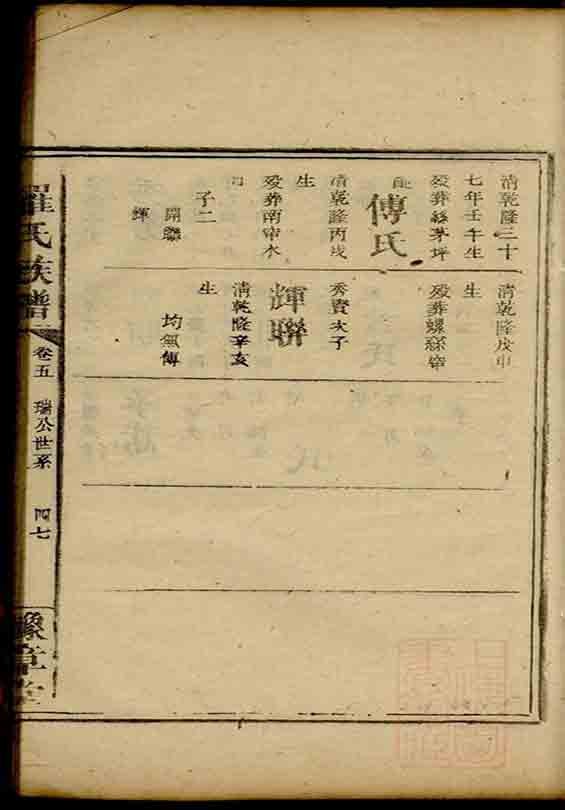 清乾隆三十
七年壬午生
歿葬絲茅坪
配
傅氏
清乾隆丙戌
生
歿葬南帘水
子二
開聯
輝
清乾隆戊申
生
歿葬螺絲帘
秀賢次子
輝聯
清乾隆辛亥
生
均無傳
羅氏族譜
卷五
瑞公世系
四七
豫章堂